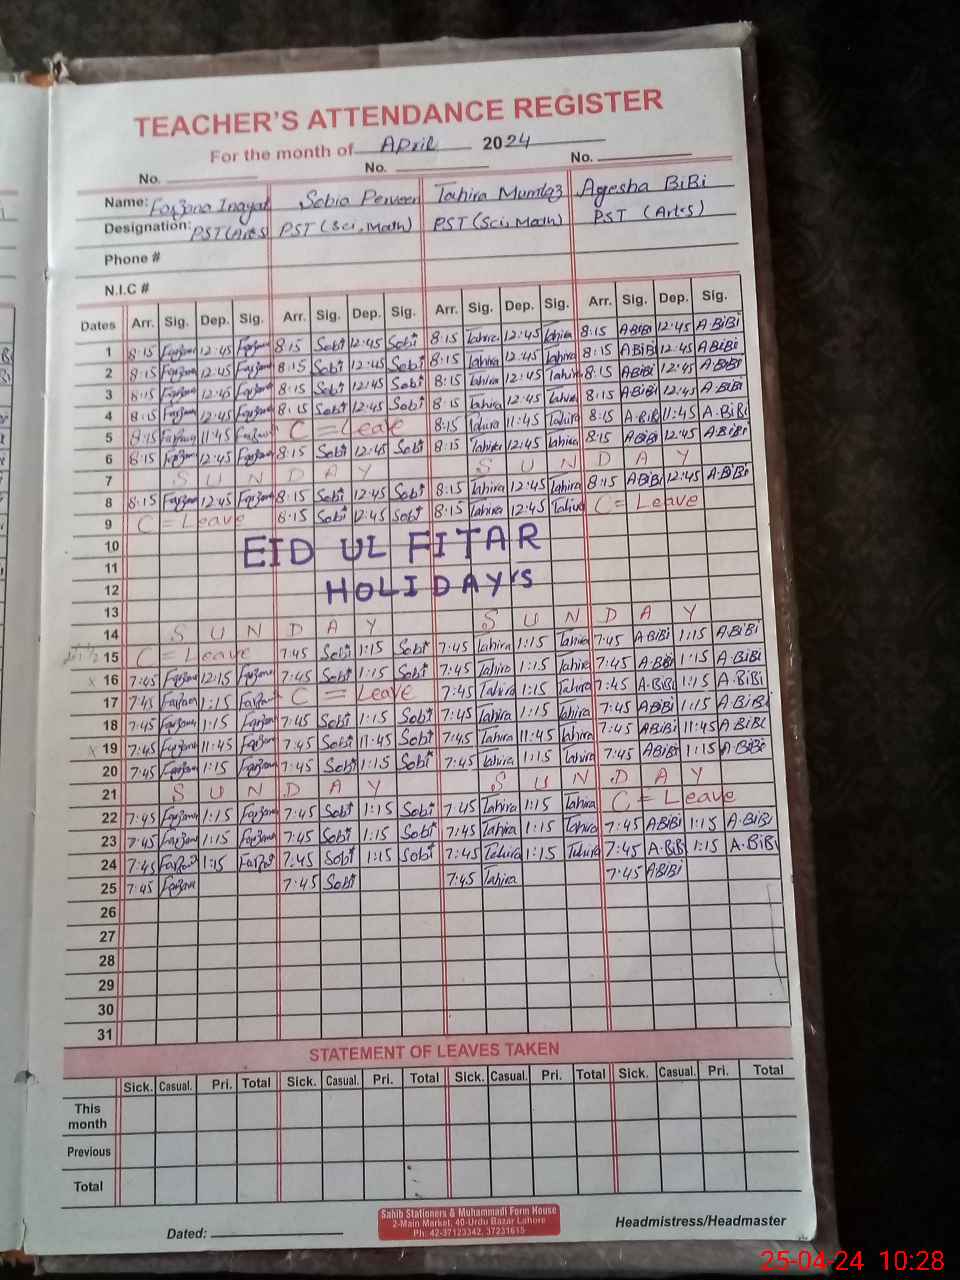 TEACHER'S ATTENDANCE REGISTER
For the month of April 2024
No. No. No.
Name: Farzana Inayat Sobia Perveen Tahira Mumtaz Ayesha BiBi
Designation: PST(Arts) PST (Sci, Math) PST (Sci, Math) PST (Artes)
Phone #
N.I.C #
Dates Arr. Sig. Dep. Sig. Arr. Sig. Dep. Sig. Arr. Sig. Dep. Sig. Arr. Sig. Dep. Sig.
1 8:15 Farzana 12:45 Farzana 8:15 Sobi 12:45 Sobi 8:15 Tahira 12:45 Tahira 8:15 ABiBi 12:45 A.BiBi
2 8:15 Farzana 12:45 Farzana 8:15 Sobi 12:45 Sobi 8:15 Tahira 12:45 Tahira 8:15 ABiBi 12:45 ABiBi
3 8:15 Farzana 12:45 Farzana 8:15 Sobi 12:45 Sobi 8:15 Tahira 12:45 Tahira 8:15 ABiBi 12:45 ABiBi
4 8:15 Farzana 12:45 Farzana 8:15 Sobi 12:45 Sobi 8:15 Tahira 12:45 Tahira 8:15 ABiBi 12:45 A.BiBi
5 8:15 Farzana 11:45 Farzana C = Leave 8:15 Tahira 11:45 Tahira 8:15 A.BiBi 11:45 A.BiBi
6 8:15 Farzana 12:45 Farzana 8:15 Sobi 12:45 Sobi 8:15 Tahira 12:45 Tahira 8:15 ABiBi 12:45 A.BiBi
7 S U N D A Y S U N D A Y
8 8:15 Farzana 12:45 Farzana 8:15 Sobi 12:45 Sobi 8:15 Tahira 12:45 Tahira 8:15 ABiBi 12:45 A.BiBi
9 C = Leave 8:15 Sobi 12:45 Sobi 8:15 Tahira 12:45 Tahira C = Leave
10 EID UL FITAR
11
12 HOLIDAY'S
13
14 S U N D A Y S U N D A Y
15 C = Leave 7:45 Sobi 1:15 Sobi 7:45 Tahira 1:15 Tahira 7:45 ABiBi 1:15 ABiBi
x 16 7:45 Farzana 12:15 Farzana 7:45 Sobi 1:15 Sobi 7:45 Tahira 1:15 Tahira 7:45 A.BiBi 1:15 A.BiBi
17 7:45 Farzana 1:15 Farzana C = Leave 7:45 Tahira 1:15 Tahira 7:45 A.BiBi 1:15 A.BiBi
18 7:45 Farzana 1:15 Farzana 7:45 Sobi 1:15 Sobi 7:45 Tahira 1:15 Tahira 7:45 ABiBi 1:15 A BiBi
x 19 7:45 Farzana 11:45 Farzana 7:45 Sobi 11:45 Sobi 7:45 Tahira 11:45 Tahira 7:45 ABiBi 11:45 A BiBi
20 7:45 Farzana 1:15 Farzana 7:45 Sobi 1:15 Sobi 7:45 Tahira 1:15 Tahira 7:45 ABiBi 1:15 A.BiBi
21 S U N D A Y S U N D A Y
22 7:45 Farzana 1:15 Farzana 7:45 Sobi 1:15 Sobi 7:45 Tahira 1:15 Tahira C = Leave
23 7:45 Farzana 1:15 Farzana 7:45 Sobi 1:15 Sobi 7:45 Tahira 1:15 Tahira 7:45 ABiBi 1:15 A.BiBi
24 7:45 Farzana 1:15 Farzana 7:45 Sobi 1:15 Sobi 7:45 Tahira 1:15 Tahira 7:45 A.BiBi 1:15 A.BiBi
25 7:45 Farzana 7:45 Sobi 7:45 Tahira 7:45 ABiBi
26
27
28
29
30
31
STATEMENT OF LEAVES TAKEN
Sick. Casual. Pri. Total Sick. Casual. Pri. Total Sick. Casual. Pri. Total Sick. Casual. Pri. Total
This month
Previous
Total
Dated:
Sahib Stationers & Muhammadi Form House
2-Main Market, 40-Urdu Bazar Lahore
Ph: 42-37123342, 37231615
Headmistress/Headmaster
25-04-24 10:28